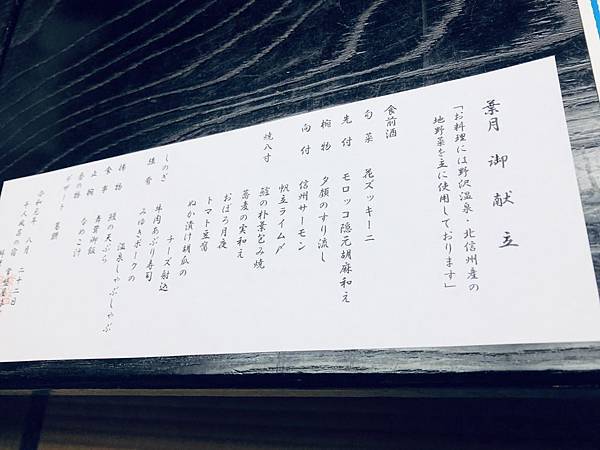 葉月 御献立
「お料理には野沢温泉・北信州産の
地野菜を主に使用しております」
食前酒
旬菜 花ズッキーニ
先付 モロッコ隠元胡麻和え
椀物 夕顔のすり流し
向付 信州サーモン
帆立ライム〆
焼八寸 鱧の朴葉包み焼
蕎麦の実和え
おぼろ月夜
トマト豆富
ぬか漬け胡瓜の
チーズ射込
しのぎ 牛肉あぶり寿司
強肴 みゆきポークの
温泉しゃぶしゃぶ
揚物 鱧の天ぷら
食事
止椀 なめこ汁
香の物
デザート
令和元年 八月 二十二日